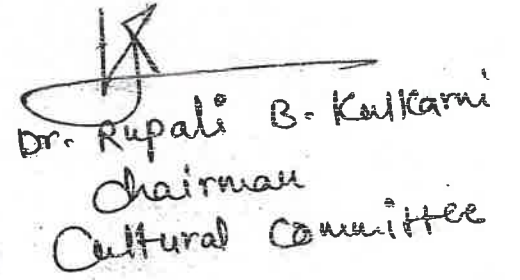 Dr. Rupali B. Kulkarni
Chairman
Cultural Committee